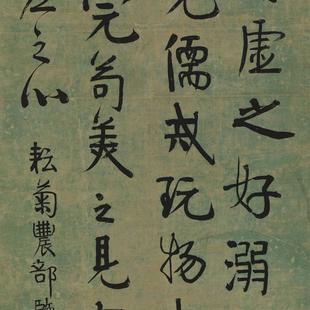 虛之好溺
先儒戒玩物
完苟美之見
之心
耘菊農部